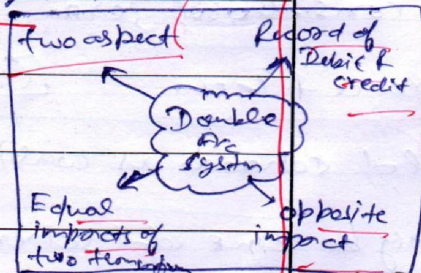 two aspect
Record of
Debit &
credit
Double
A/c
system
Equal
impacts of
two transaction
opposite
impact